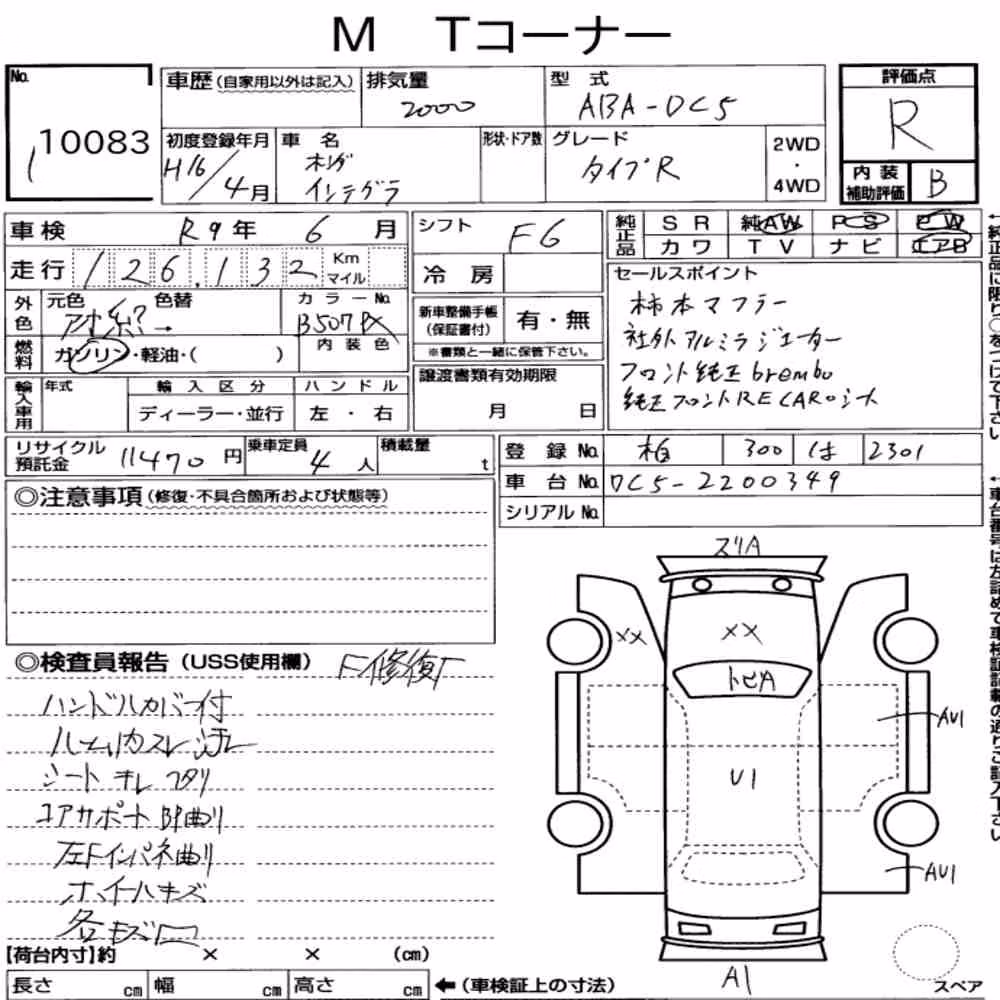 M Tコーナー
No. 10083
車歴(自家用以外は記入)
排気量 2000
型式 ABA-DC5
評価点 R
初度登録年月 H16/4月
車名 ホンダ インテグラ
形状・ドア数
グレード タイプR
2WD・4WD
内装補助評価 B
車検 R9年 6月
シフト F6
純正品 SR 純AW PS PW
カワ TV ナビ エアB
走行 126,132 Km マイル
冷房
外色 元色 色替 カラーNo. B507P
内装色
新車整備手帳(保証書付) 有・無
※書類と一緒に保管下さい。
燃料 ガソリン・軽油・( )
セールスポイント
柿本マフラー
社外アルミラジエーター
フロント純正brembo
純正フロントRECAROシート
輸入車用 年式 輸入区分 ハンドル
ディーラー・並行 左・右
譲渡書類有効期限
月 日
リサイクル預託金 11470円
乗車定員 4人
積載量 t
登録No. 柏 300 は 2301
車台No. DC5-2200349
シリアルNo.
◎注意事項(修復・不具合箇所および状態等)
◎検査員報告(USS使用欄) F修復F
ハンドルカバー付
ハンドルカスレ 汚レ
シート キレ コゲ
コアサポート 曲り
左Fインパネ曲り
ホイールキズ
各キズ凹
ズリA
XX
XX
トビA
AU1
U1
AU1
A1
【荷台内寸】約 × × (cm)
長さ cm 幅 cm 高さ cm
←(車検証上の寸法)
スペア
←純正品に限り○をつけて下さい
←車台番号は左詰めで車検証記載の通りご記入下さい